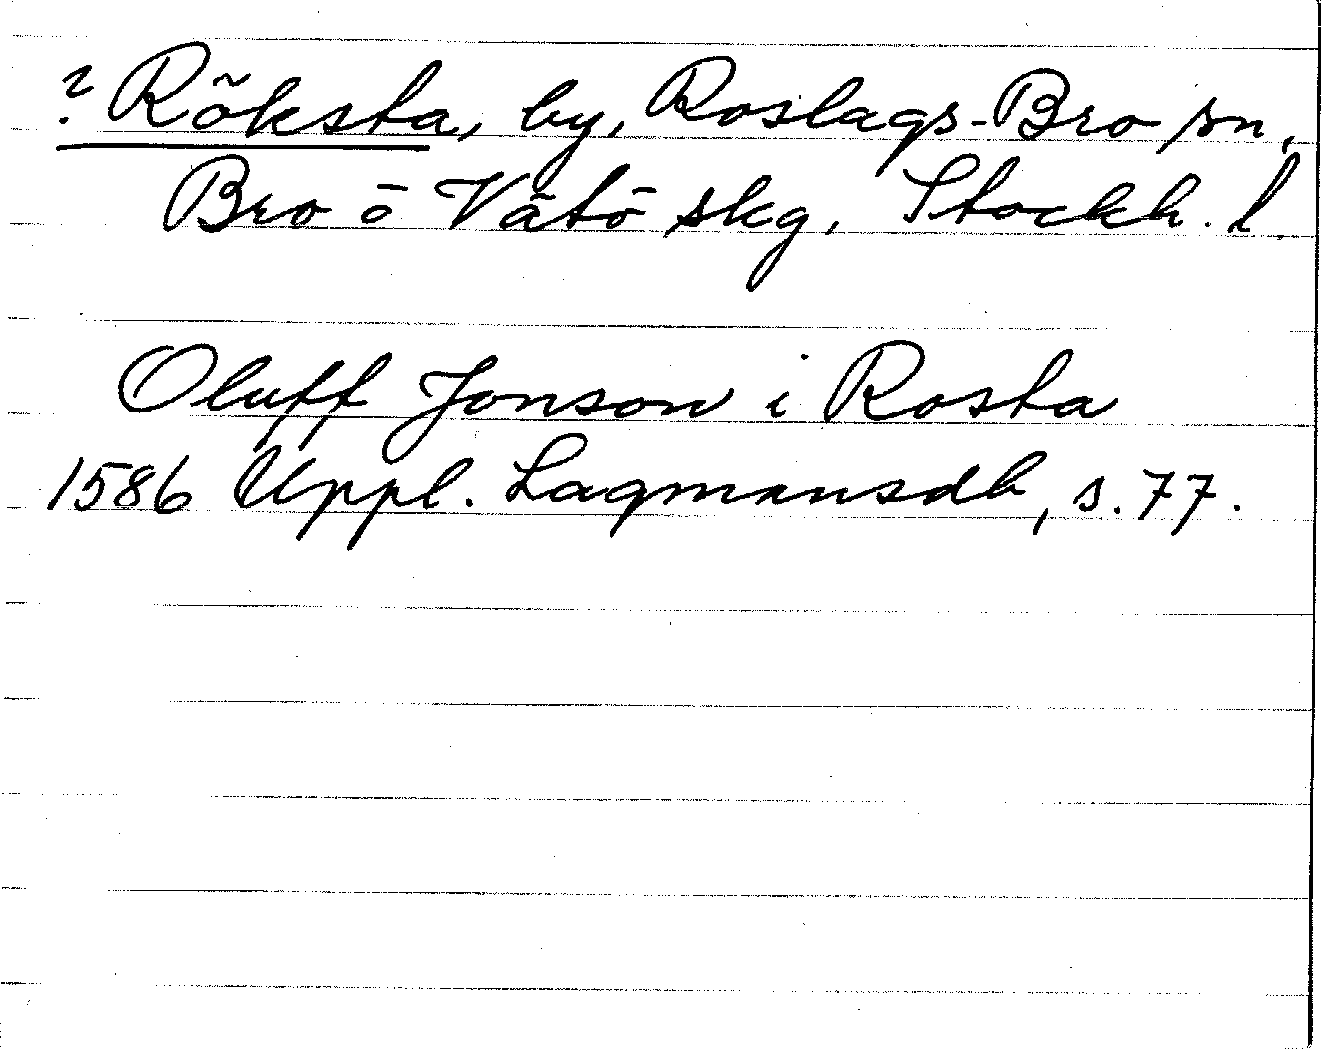 ? Röksta, by, Roslags-Bro sn,
Bro ö Vätö skg, Stockh. l.
Oluff Jonson i Rosta
1586 Uppl. Lagmansdb, s. 77.